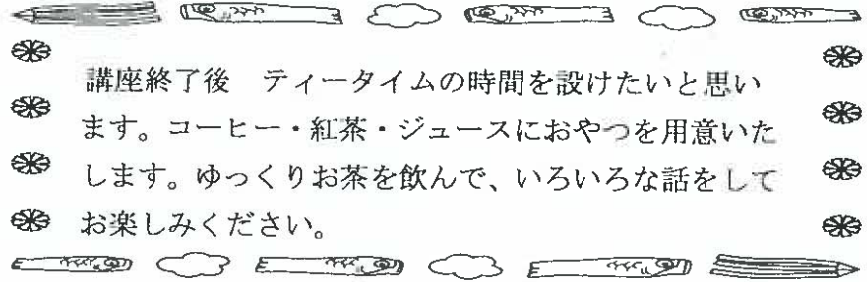 講座終了後　ティータイムの時間を設けたいと思い
ます。コーヒー・紅茶・ジュースにおやつを用意いた
します。ゆっくりお茶を飲んで、いろいろな話をして
お楽しみください。